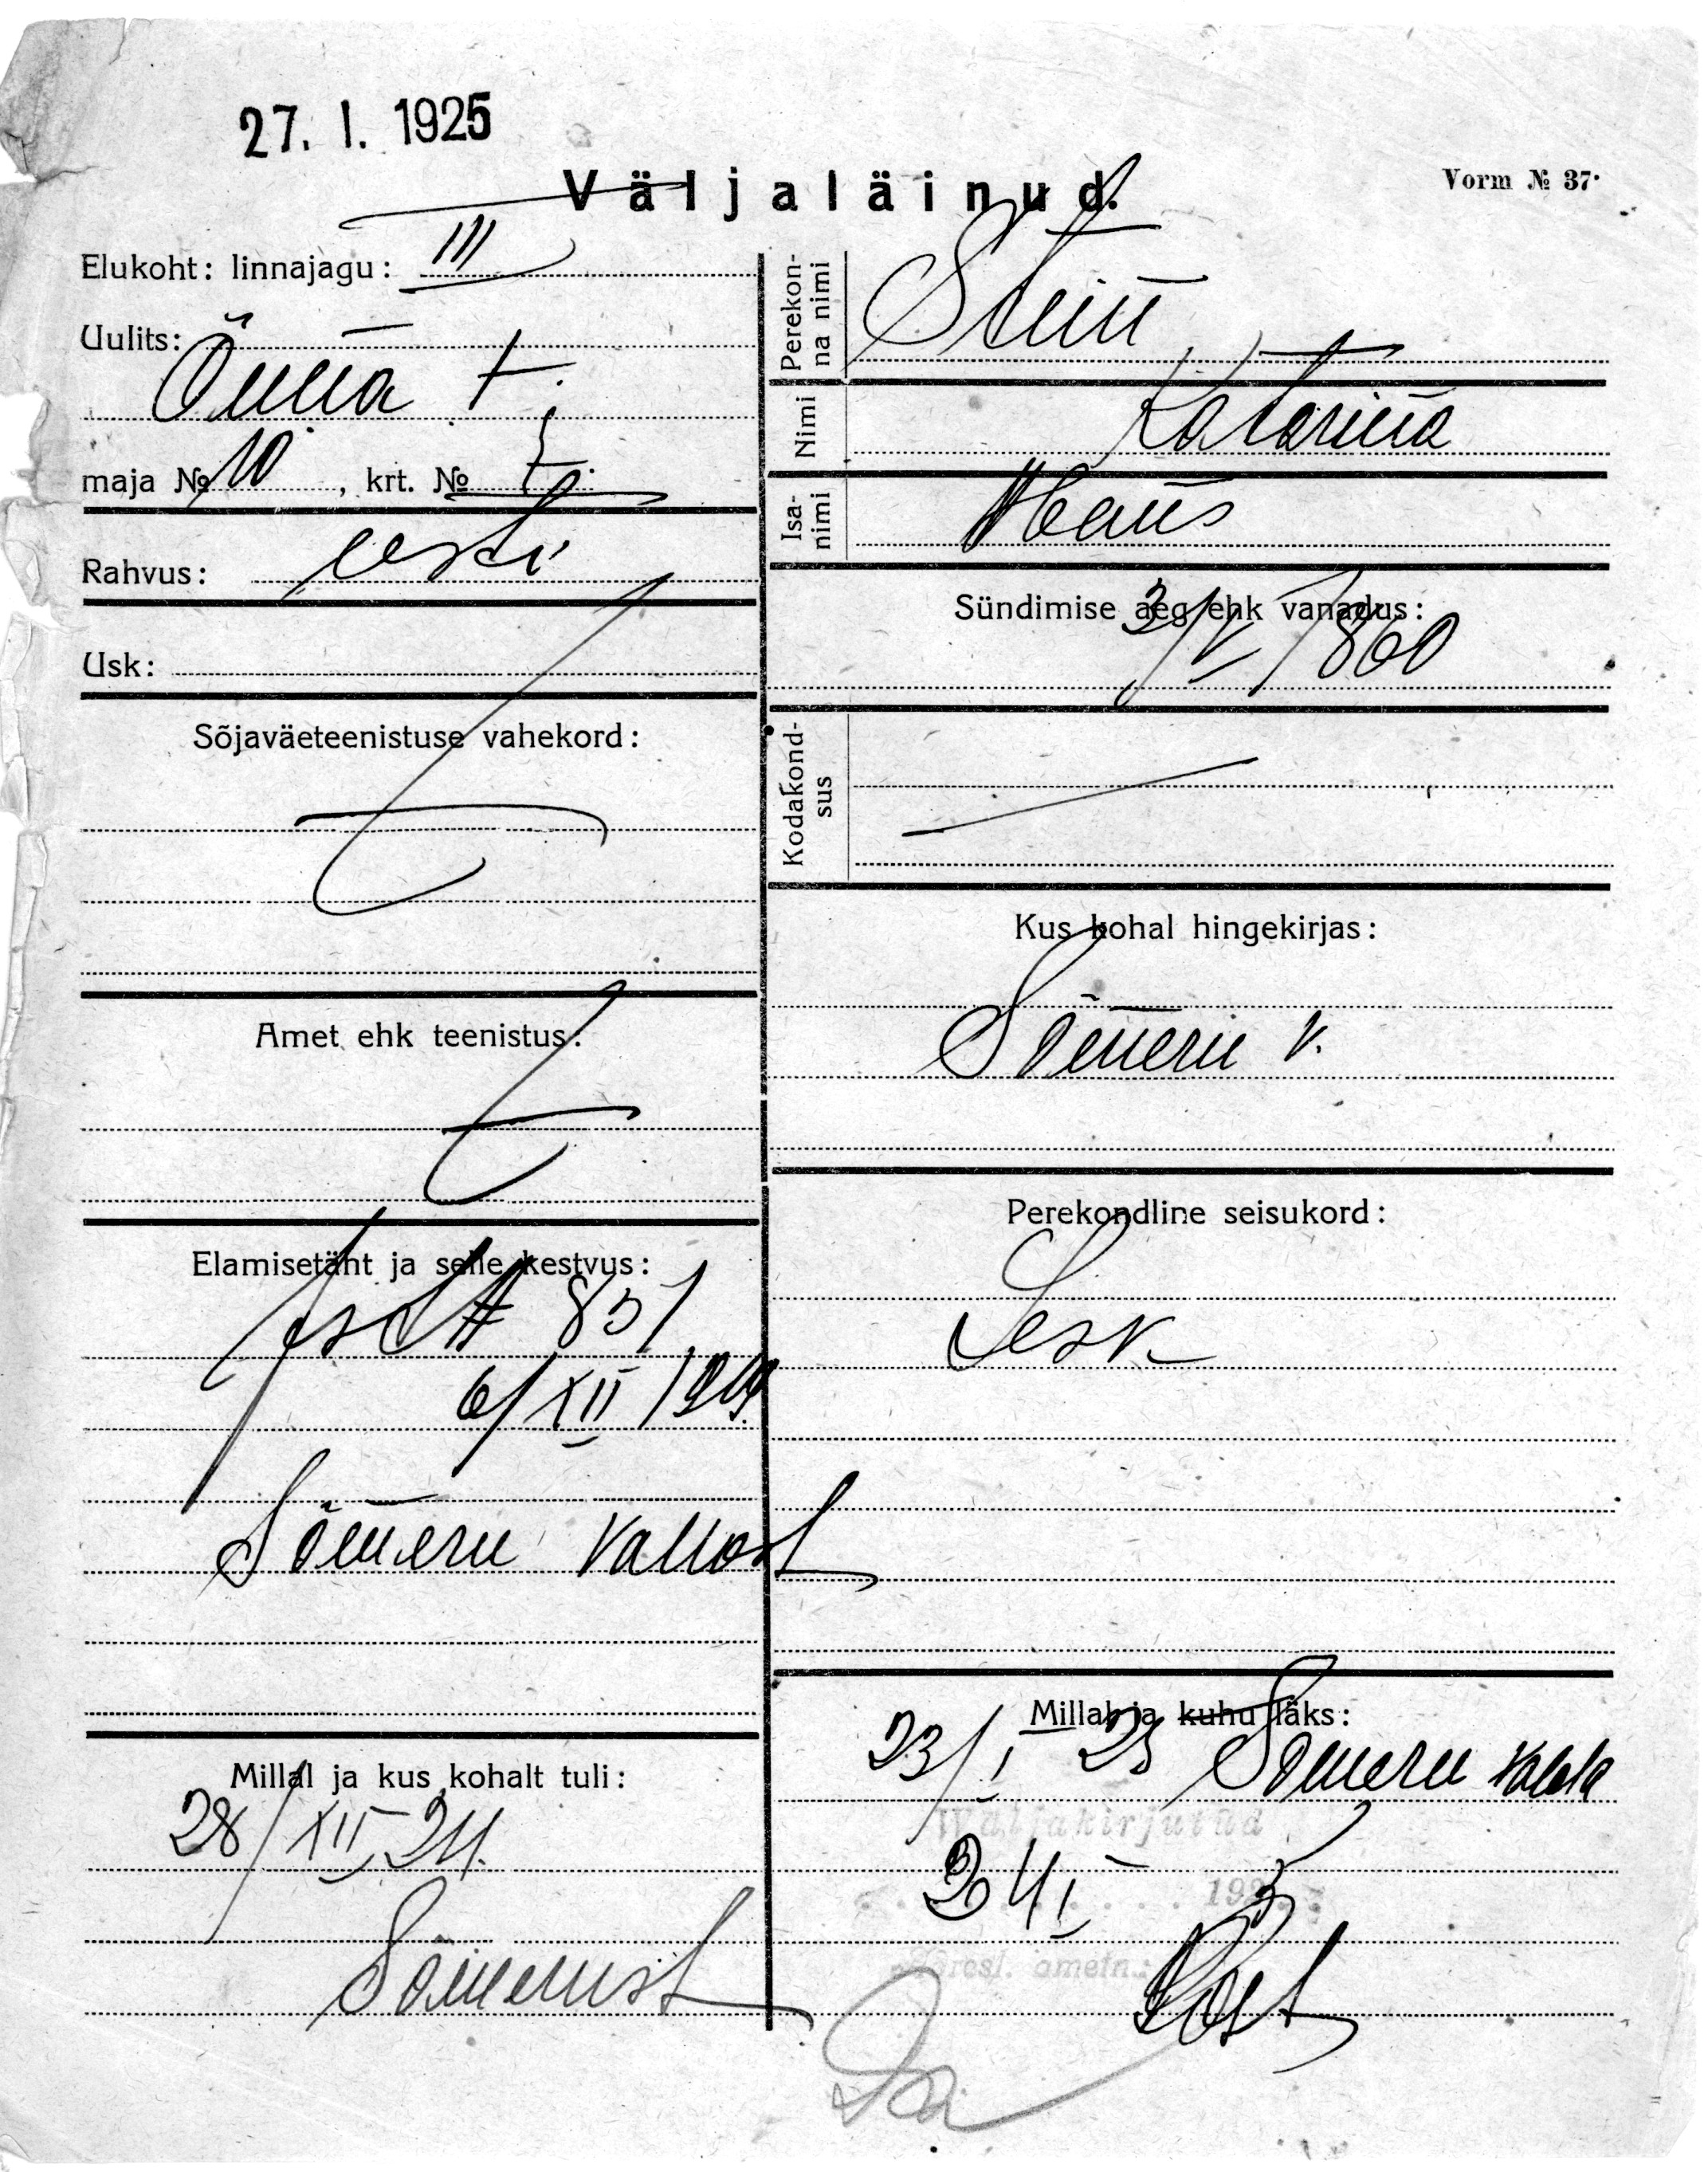 27. I. 1925
Väljaläinud.
Vorm № 37.
Elukoht: linnajagu: III
Uulits:
Õnne t.
maja № 10, krt. №
Rahvus: eesti
Usk:
Sõjaväeteenistuse vahekord:
Amet ehk teenistus:
Elamisetäht ja selle kestvus:
857
6/XII 1924
Sõmeru vallast
Millal ja kus kohalt tuli:
28/XII 24.
Sõmerust
Perekonna nimi
Nimi Katarina
Isanimi Hans
Sündimise aeg ehk vanadus:
3/V 1860
Kodakondsus
Kus kohal hingekirjas:
Sõmeru v.
Perekondline seisukord:
Lesk
Millal ja kuhu läks:
23/I 25 Sõmeru valda
Väljakirjutud
24 I 1925
Adresl. ametn.: